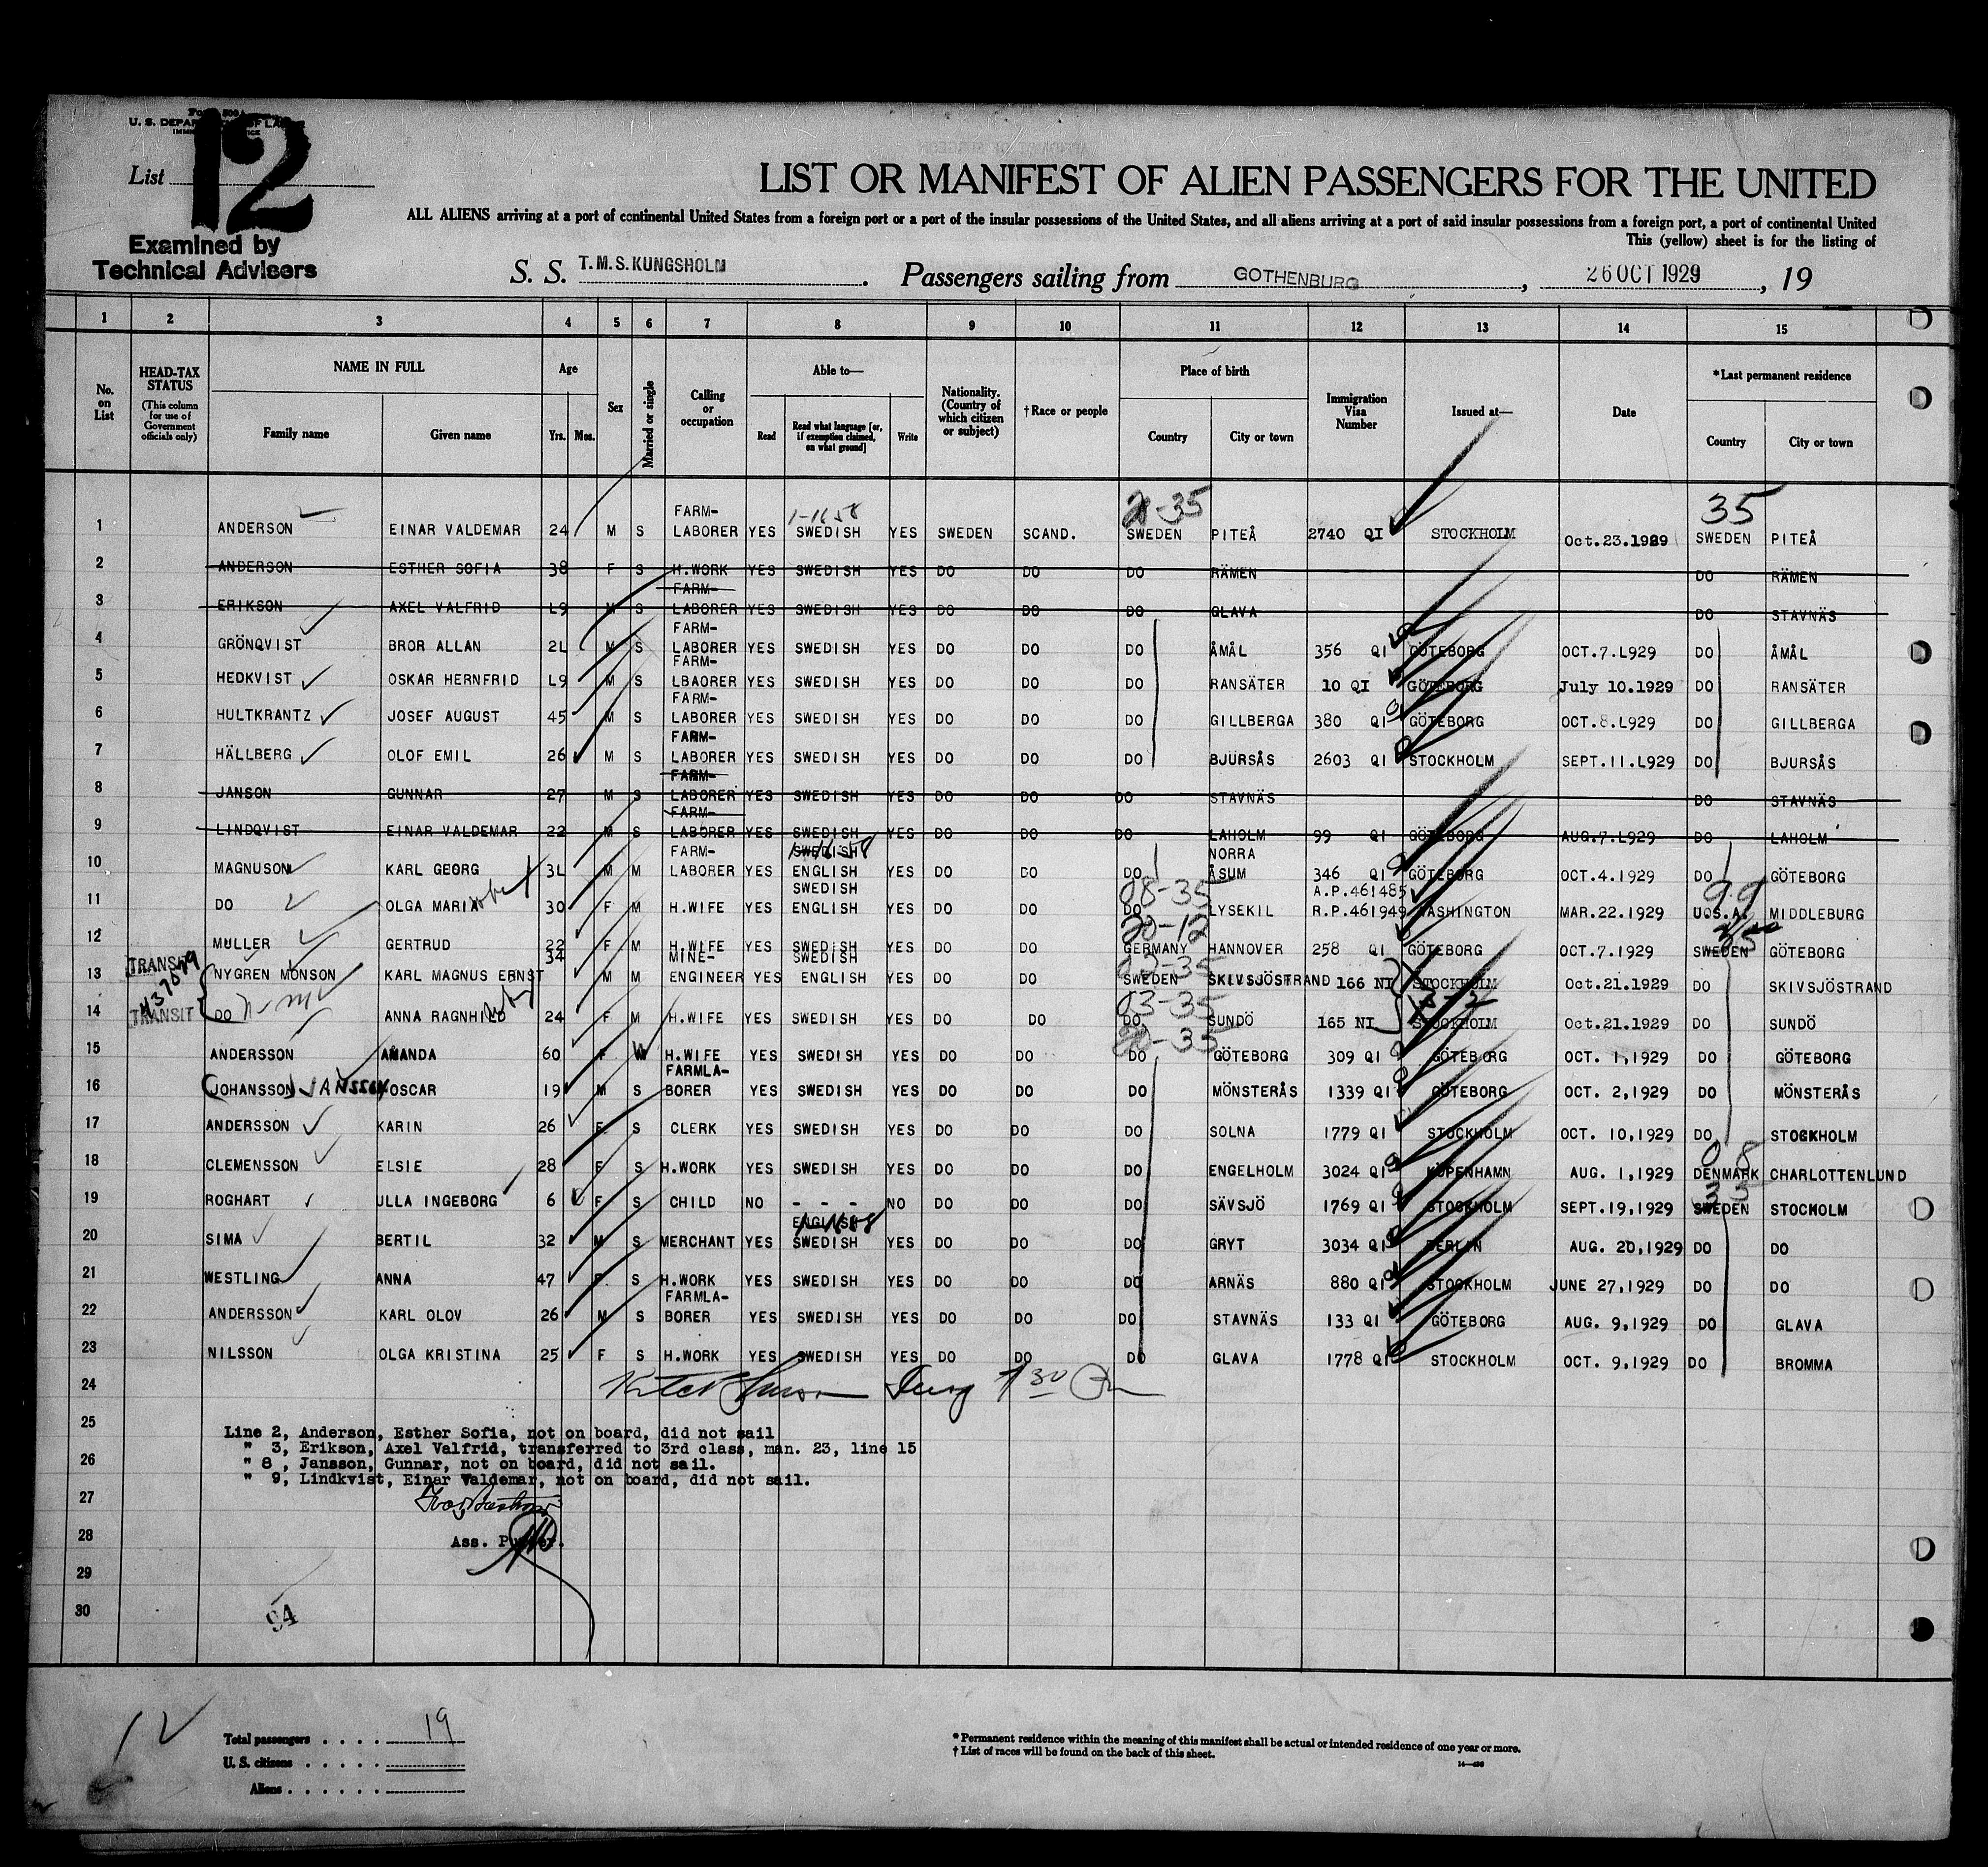 Form 500A
U. S. DEPARTMENT OF LABOR
IMMIGRATION SERVICE
List 12
Examined by
Technical Advisers
LIST OR MANIFEST OF ALIEN PASSENGERS FOR THE UNITED
ALL ALIENS arriving at a port of continental United States from a foreign port or a port of the insular possessions of the United States, and all aliens arriving at a port of said insular possessions from a foreign port, a port of continental United
This (yellow) sheet is for the listing of
S. S. T.M.S. KUNGSHOLM. Passengers sailing from GOTHENBURG, 26 OCT 1929, 19
1 2 3 4 5 6 7 8 9 10 11 12 13 14 15
No. on List
HEAD-TAX STATUS (This column for use of Government officials only)
NAME IN FULL
Family name Given name
Age
Yrs. Mos.
Sex
Married or single
Calling or occupation
Able to—
Read Read what language [or, if exemption claimed, on what ground] Write
Nationality. (Country of which citizen or subject)
†Race or people
Place of birth
Country City or town
Immigration Visa Number
Issued at—
Date
*Last permanent residence
Country City or town
FARM- 1-1658 35 35
1 ANDERSON EINAR VALDEMAR 24 M S LABORER YES SWEDISH YES SWEDEN SCAND. SWEDEN PITEÅ 2740 QI STOCKHOLM Oct.23.1929 SWEDEN PITEÅ
2 ANDERSON ESTHER SOFIA 38 F S H.WORK YES SWEDISH YES DO DO DO RÄMEN DO RÄMEN
FARM-
3 ERIKSON AXEL VALFRID L9 M S LABORER YES SWEDISH YES DO DO DO GLAVA DO STAVNÄS
FARM-
4 GRÖNQVIST BROR ALLAN 2L M S LABORER YES SWEDISH YES DO DO DO ÅMÅL 356 QI GÖTEBORG OCT.7.L929 DO ÅMÅL
FARM-
5 HEDKVIST OSKAR HERNFRID L9 M S LBAORER YES SWEDISH YES DO DO DO RANSÄTER 10 QI GÖTEBORG July 10.1929 DO RANSÄTER
FARM-
6 HULTKRANTZ JOSEF AUGUST 45 M S LABORER YES SWEDISH YES DO DO DO GILLBERGA 380 QI GÖTEBORG OCT.8.L929 DO GILLBERGA
FARM-
7 HÄLLBERG OLOF EMIL 26 M S LABORER YES SWEDISH YES DO DO DO BJURSÅS 2603 QI STOCKHOLM SEPT.11.L929 DO BJURSÅS
FARM-
8 JANSON GUNNAR 27 M S LABORER YES SWEDISH YES DO DO DO STAVNÄS DO STAVNÄS
FARM-
9 LINDQVIST EINAR VALDEMAR 22 M S LABORER YES SWEDISH YES DO DO DO LAHOLM 99 QI GÖTEBORG AUG.7.L929 DO LAHOLM
FARM- SWEDISH NORRA
10 MAGNUSON KARL GEORG 3L M M LABORER YES ENGLISH YES DO DO DO ÅSUM 346 QI GÖTEBORG OCT.4.1929 DO GÖTEBORG
SWEDISH 08-35 A.P.461485 99
11 DO OLGA MARIA 30 F M H.WIFE YES ENGLISH YES DO DO DO LYSEKIL R.P.461949 WASHINGTON MAR.22.1929 U.S.A. MIDDLEBURG
20-12
12 MULLER GERTRUD 22 F M H.WIFE YES SWEDISH YES DO DO GERMANY HANNOVER 258 QI GÖTEBORG OCT.7.1929 SWEDEN GÖTEBORG
TRANSIT 34 MINE- SWEDISH
13 NYGREN MONSON KARL MAGNUS ERNST M M ENGINEER YES ENGLISH YES DO DO SWEDEN SKIVSJÖSTRAND 166 NI STOCKHOLM Oct.21.1929 DO SKIVSJÖSTRAND
03-35
14 TRANSIT DO ANNA RAGNHILD 24 F M H.WIFE YES SWEDISH YES DO DO DO SUNDÖ 165 NI STOCKHOLM Oct.21.1929 DO SUNDÖ
20-35
15 ANDERSSON AMANDA 60 F W H.WIFE YES SWEDISH YES DO DO DO GÖTEBORG 309 QI GÖTEBORG OCT. 1,1929 DO GÖTEBORG
FARMLA-
16 (JOHANSSON) JANSSON OSCAR 19 M S BORER YES SWEDISH YES DO DO DO MÖNSTERÅS 1339 QI GÖTEBORG OCT. 2,1929 DO MÖNSTERÅS
17 ANDERSSON KARIN 26 F S CLERK YES SWEDISH YES DO DO DO SOLNA 1779 QI STOCKHOLM OCT. 10,1929 DO STOCKHOLM
18 CLEMENSSON ELSIE 28 F S H.WORK YES SWEDISH YES DO DO DO ENGELHOLM 3024 QI KÖPENHAMN AUG. 1,1929 DENMARK CHARLOTTENLUND
19 ROGHART ULLA INGEBORG 6 F S CHILD NO - - - NO DO DO DO SÄVSJÖ 1769 QI STOCKHOLM SEPT.19,1929 SWEDEN STOCHOLM
ENGLISH
20 SIMA BERTIL 32 M S MERCHANT YES SWEDISH YES DO DO DO GRYT 3034 QI BERLIN AUG. 20,1929 DO DO
21 WESTLING ANNA 47 F S H.WORK YES SWEDISH YES DO DO DO ARNÄS 880 QI STOCKHOLM JUNE 27,1929 DO DO
FARMLA-
22 ANDERSSON KARL OLOV 26 M S BORER YES SWEDISH YES DO DO DO STAVNÄS 133 QI GÖTEBORG AUG. 9,1929 DO GLAVA
23 NILSSON OLGA KRISTINA 25 F S H.WORK YES SWEDISH YES DO DO DO GLAVA 1778 QI STOCKHOLM OCT. 9,1929 DO BROMMA
24
25
Line 2, Anderson, Esther Sofia, not on board, did not sail
" 3, Erikson, Axel Valfrid, transferred to 3rd class, man. 23, line 15
26
" 8, Jansson, Gunnar, not on board, did not sail.
" 9, Lindkvist, Einar Valdemar, not on board, did not sail.
27
28
Ass. Purser.
29
30
94
12
Total passengers . . . . 19
U. S. citizens . . . . .
Aliens . . . . . .
* Permanent residence within the meaning of this manifest shall be actual or intended residence of one year or more.
† List of races will be found on the back of this sheet.